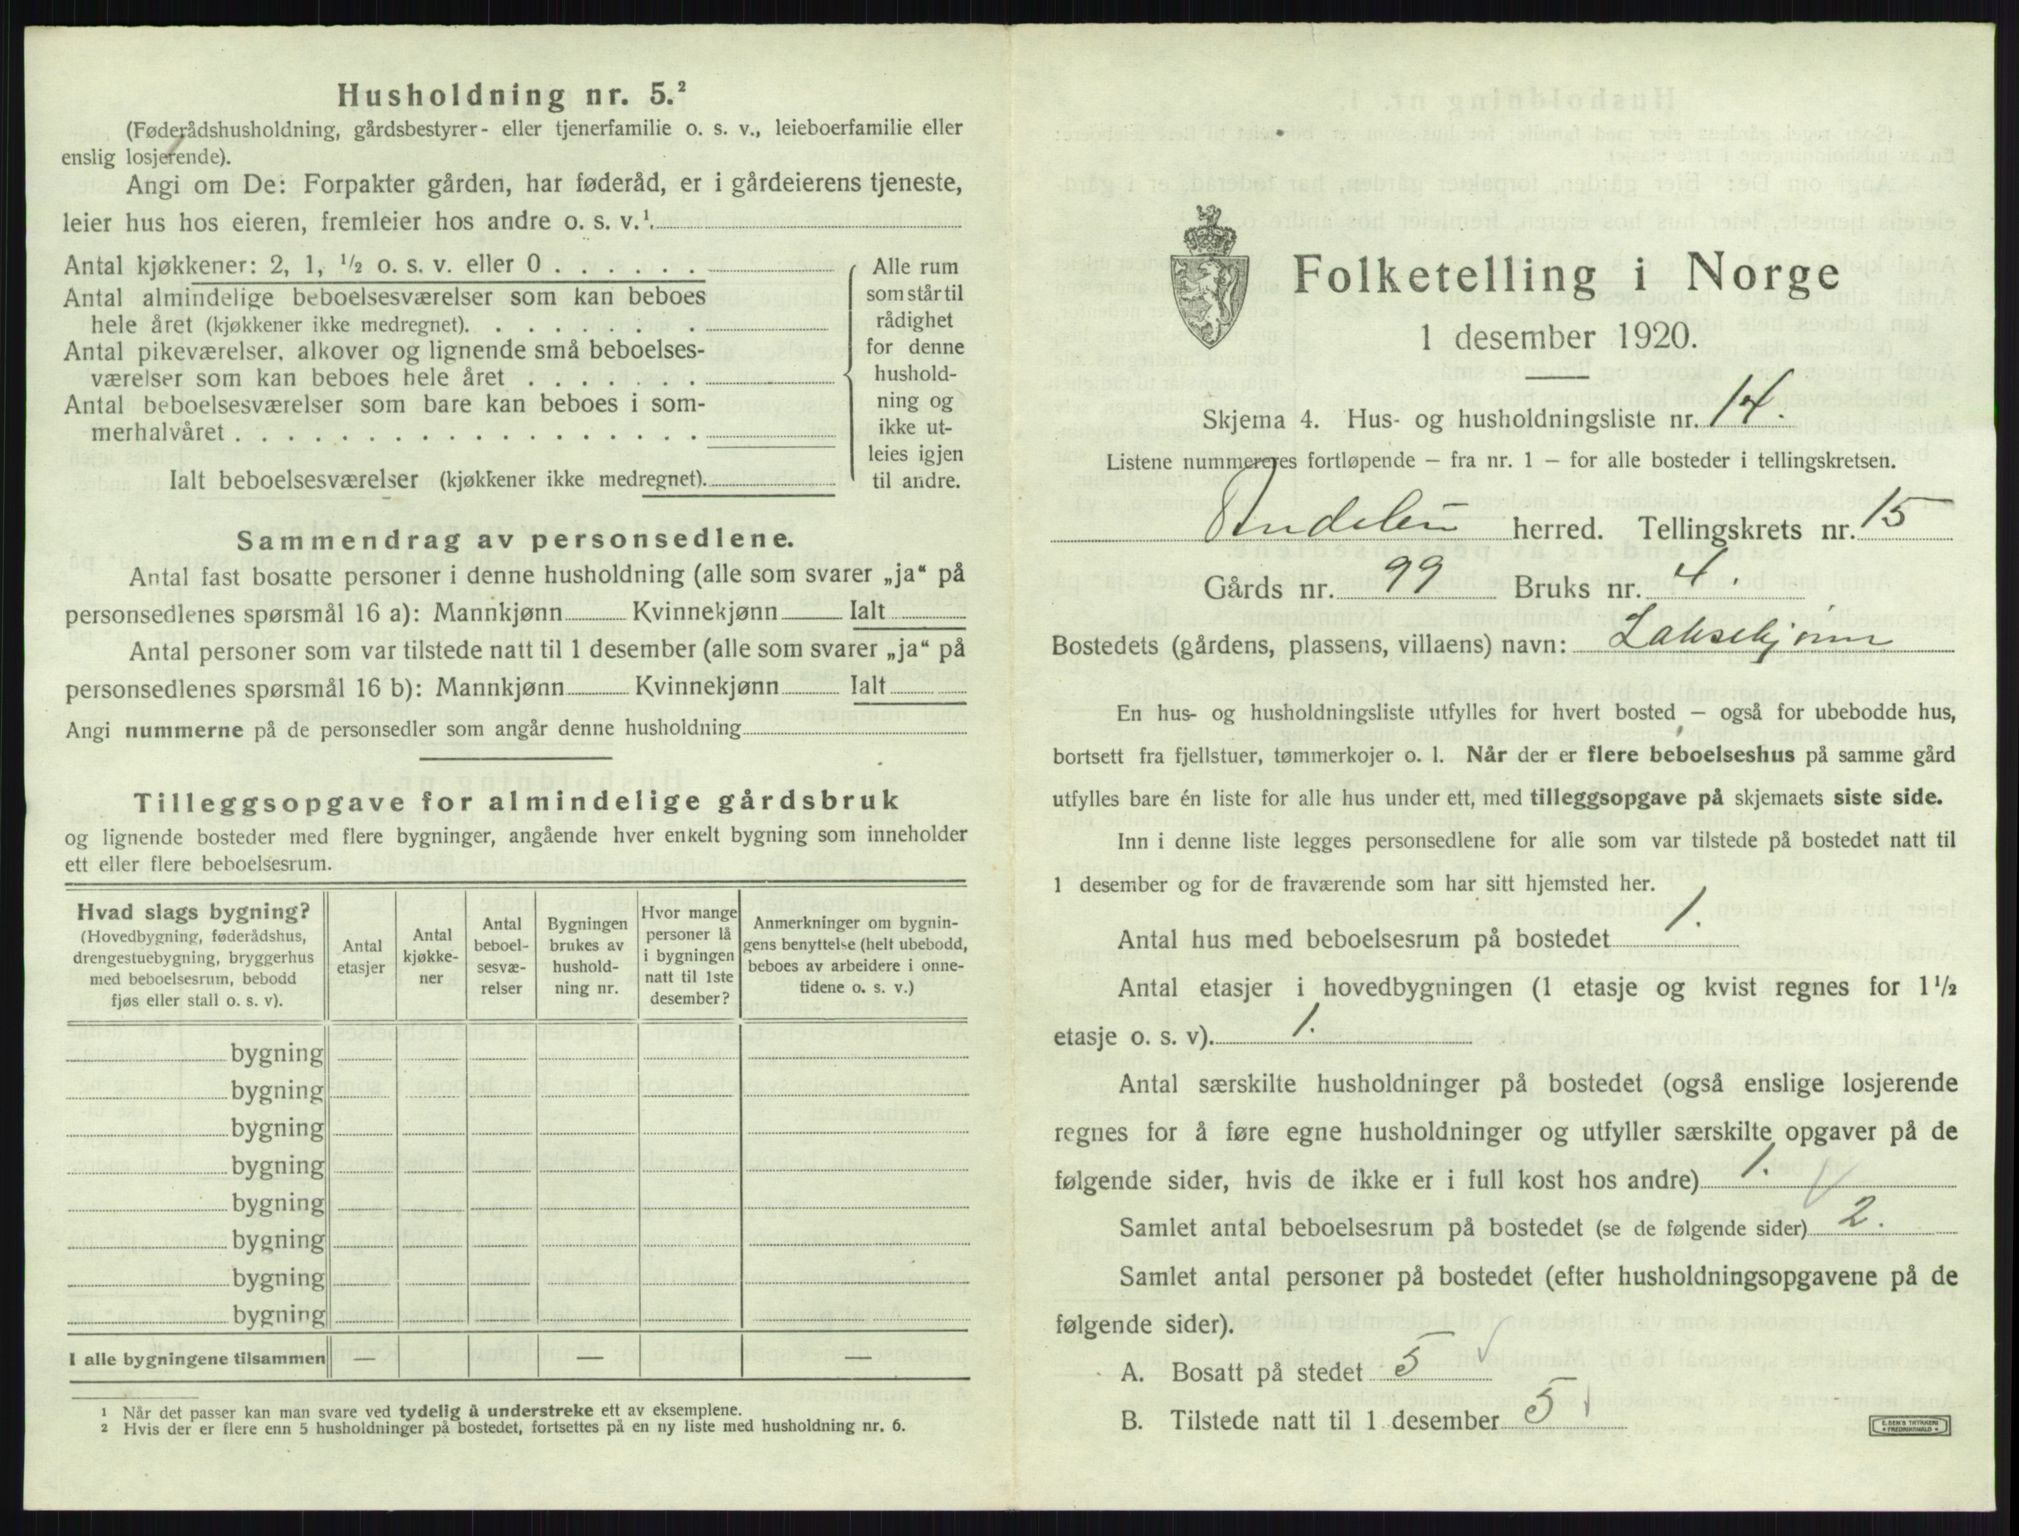 Husholdning nr. 5.²
(Føderådshusholdning, gårdsbestyrer- eller tjenerfamilie o. s. v., leieboerfamilie eller
enslig losjerende).
Angi om De: Forpakter gården, har føderåd, er i gårdeierens tjeneste,
leier hus hos eieren, fremleier hos andre o. s. v.¹
Antal kjøkkener: 2, 1, ½ o. s. v. eller 0
Antal almindelige beboelsesværelser som kan beboes
hele året (kjøkkener ikke medregnet).
Antal pikeværelser, alkover og lignende små beboelses-
værelser som kan beboes hele året
Antal beboelsesværelser som bare kan beboes i som-
merhalvåret
Ialt beboelsesværelser (kjøkkener ikke medregnet).
Alle rum
som står til
rådighet
for denne
hushold-
ning og
ikke ut-
leies igjen
til andre.
Sammendrag av personsedlene.
Antal fast bosatte personer i denne husholdning (alle som svarer „ja“ på
personsedlenes spørsmål 16 a): Mannkjønn Kvinnekjønn Ialt
Antal personer som var tilstede natt til 1 desember (alle som svarer „ja“ på
personsedlenes spørsmål 16 b): Mannkjønn Kvinnekjønn Ialt
Angi nummerne på de personsedler som angår denne husholdning
Tilleggsopgave for almindelige gårdsbruk
og lignende bosteder med flere bygninger, angående hver enkelt bygning som inneholder
ett eller flere beboelsesrum.
Hvad slags bygning?
(Hovedbygning, føderådshus,
drengestuebygning, bryggerhus
med beboelsesrum, bebodd
fjøs eller stall o. s. v).
Antal
etasjer
Antal
kjøkke-
ner
Antal
beboel-
sesvæ-
relser
Bygningen
brukes av
hushold-
ning nr.
Hvor mange
personer lå
i bygningen
natt til 1ste
desember?
Anmerkninger om bygnin-
gens benyttelse (helt ubebodd,
beboes av arbeidere i onne-
tidene o. s. v.)
bygning
bygning
bygning
bygning
bygning
bygning
bygning
bygning
I alle bygningene tilsammen — — —
¹ Når det passer kan man svare ved tydelig å understreke ett av eksemplene.
² Hvis der er flere enn 5 husholdninger på bostedet, fortsettes på en ny liste med husholdning nr. 6.
Folketelling i Norge
1 desember 1920.
Skjema 4. Hus- og husholdningsliste nr. 14.
Listene nummereres fortløpende – fra nr. 1 – for alle bosteder i tellingskretsen.
herred. Tellingskrets nr. 15
Gårds nr. 99 Bruks nr. 4.
Bostedets (gårdens, plassens, villaens) navn: Laksekjønn
En hus- og husholdningsliste utfylles for hvert bosted – også for ubebodde hus,
bortsett fra fjellstuer, tømmerkojer o. l. Når der er flere beboelseshus på samme gård
utfylles bare én liste for alle hus under ett, med tilleggsopgave på skjemaets siste side.
Inn i denne liste legges personsedlene for alle som var tilstede på bostedet natt til
1 desember og for de fraværende som har sitt hjemsted her.
Antal hus med beboelsesrum på bostedet 1.
Antal etasjer i hovedbygningen (1 etasje og kvist regnes for 1½
etasje o. s. v). 1.
Antal særskilte husholdninger på bostedet (også enslige losjerende
regnes for å føre egne husholdninger og utfyller særskilte opgaver på de
følgende sider, hvis de ikke er i full kost hos andre) 1.
Samlet antal beboelsesrum på bostedet (se de følgende sider) 2.
Samlet antal personer på bostedet (efter husholdningsopgavene på de
følgende sider).
A. Bosatt på stedet 5
B. Tilstede natt til 1 desember 5